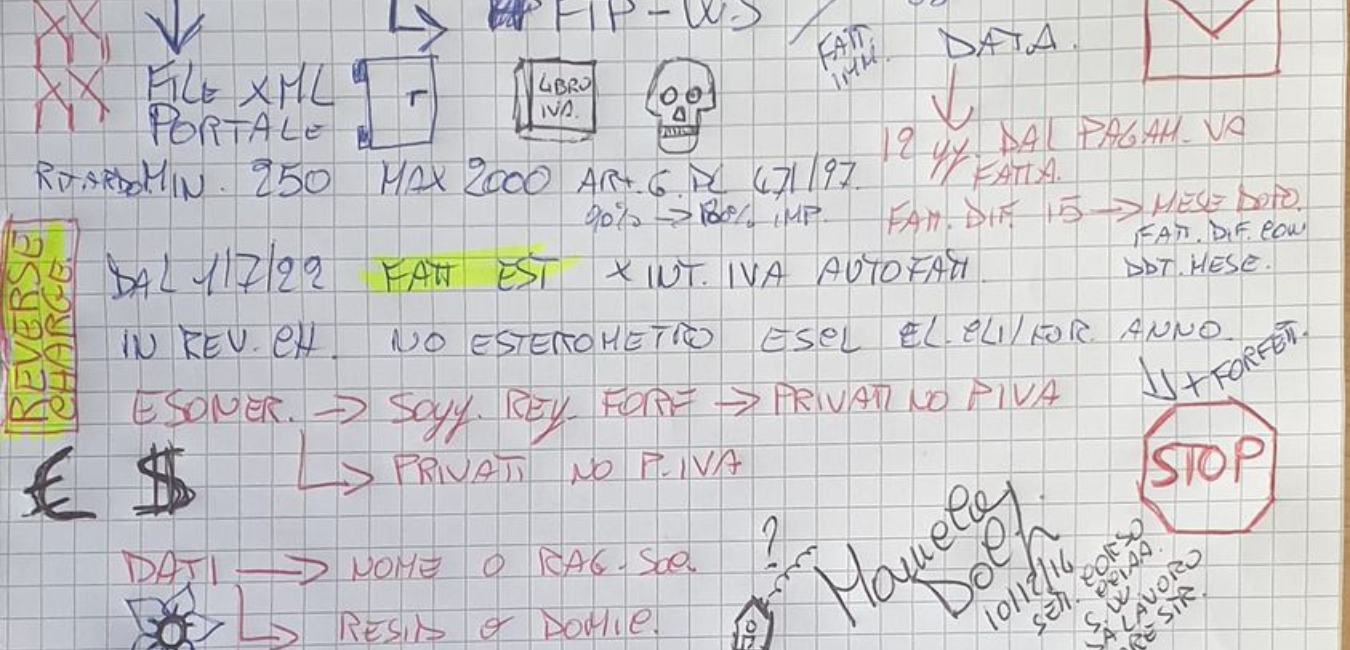 FIP-WS
FATT.
IMM.
DATA.
FILE XML
PORTALE
LIBRO
IVA.
12 gg. DAL PAGAM. VA
FATTA.
RITARDO MIN. 250 MAX 2000 ART. 6. DL 471/97.
90% → 180% IMP.
FATT. DIF. 15 → MESE DOPO.
FATT. DIF. CON
DDT. MESE.
REVERSE
CHARGE.
DAL 1/7/22 FATT EST X INT. IVA AUTOFATT.
IN REV. CH. NO ESTEROMETRO ES EL. CLI/FOR. ANNO
+ FORFETT.
ESONER. → Sogg. REG. FORF → PRIVATI NO PIVA
STOP
€ $
→ PRIVATI NO P.IVA
?
10/12/14
CORSO
S.W.
LAVORO
DATI → NOME O RAG. Soc.
→ RESID O DOMIC.